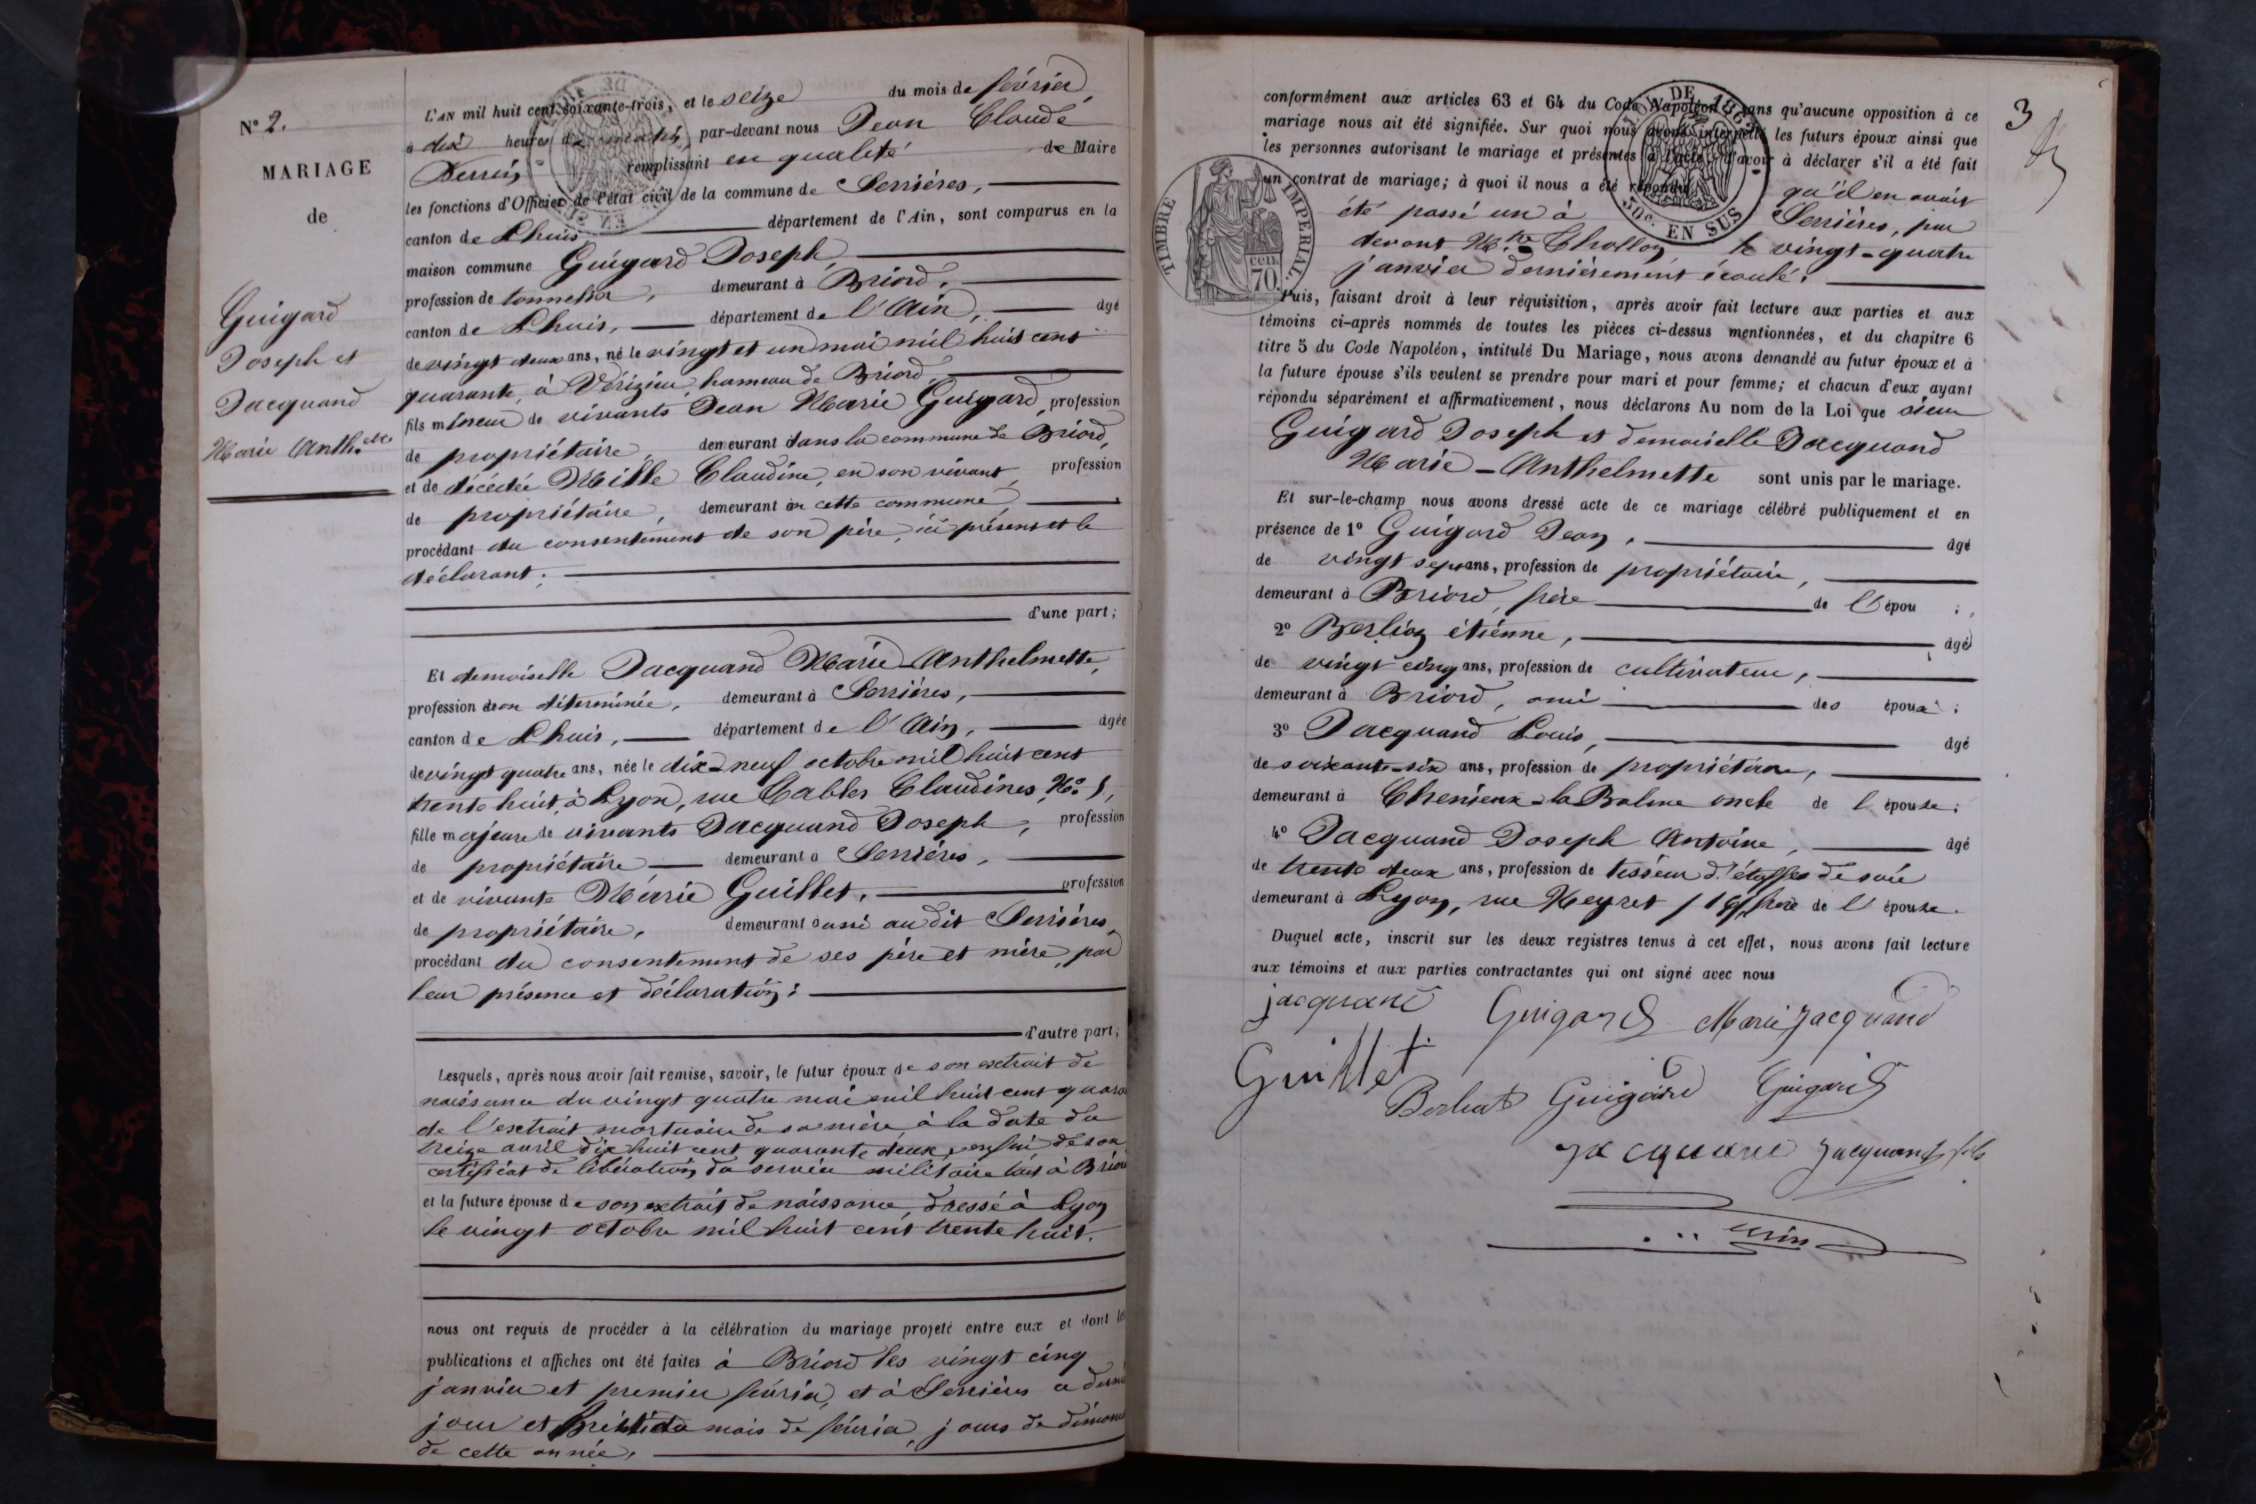 N° 2.
MARIAGE
de
Guigard
Joseph et
Jacquand
Marie Anth.ette
L'AN mil huit cent soixante-trois, et le seize du mois de février
à dix heures du matin, par-devant nous Jean Claude
Perrin remplissant en qualité de Maire
les fonctions d'Officier de l'état civil de la commune de Serrières,
canton de Lhuis département de l'Ain, sont comparus en la
maison commune Guigard Joseph,
profession de tonnelier, demeurant à Briord,
canton de Lhuis, département de l'Ain, âgé
de vingt deux ans, né le vingt et un mai mil huit cent
quarante, à Vérizieu, hameau de Briord,
fils mineur de vivants Jean Marie Guigard, profession
de propriétaire, demeurant dans la commune de Briord,
et de décédée Mille Claudine, en son vivant, profession
de propriétaire, demeurant en cette commune,
procédant du consentement de son père, ici présent et le
déclarant;
d'une part;
Et demoiselle Jacquand Marie-Anthelmette,
profession non déterminée, demeurant à Serrières,
canton de Lhuis, département de l'Ain, âgée
de vingt quatre ans, née le dix-neuf octobre mil huit cent
trente huit, à Lyon, rue Tables Claudines, No.
fille majeure de vivants Jacquand Joseph, profession
de propriétaire demeurant à Serrières,
et de vivante Marie Guillet, profession
de propriétaire, demeurant aussi au dit Serrières,
procédant du consentement de ses père et mère, par
leur présence et déclaration;
d'autre part;
Lesquels, après nous avoir fait remise, savoir, le futur époux de son extrait de
naissance du vingt quatre mai mil huit cent quara
de l'extrait mortuaire de sa mère, à la date du
treize avril dix huit cent quarante deux, enfin de son
certificat de libération du service militaire à Briord
et la future épouse de son extrait de naissance, dressé à Lyon
le vingt octobre mil huit cent trente huit.
nous ont requis de procéder à la célébration du mariage projeté entre eux et dont les
publications et affiches ont été faites à Briord les vingt cinq
janvier et premier février, et à Serrières ce dernier
jour et du mois de février, jours de dimanche
de cette année,
3
conformément aux articles 63 et 64 du Code Napoléon, sans qu'aucune opposition à ce
mariage nous ait été signifiée. Sur quoi nous avons interpellé les futurs époux ainsi que
les personnes autorisant le mariage et présentes à l'acte, d'avoir à déclarer s'il a été fait
un contrat de mariage; à quoi il nous a été répondu qu'il en avait
été passé un à Serrières, par
devant M.tre Chollon le vingt-quatre
janvier dernièrement écoulé.
Puis, faisant droit à leur réquisition, après avoir fait lecture aux parties et aux
témoins ci-après nommés de toutes les pièces ci-dessus mentionnées, et du chapitre 6
titre 5 du Code Napoléon, intitulé Du Mariage, nous avons demandé au futur époux et à
la future épouse s'ils veulent se prendre pour mari et pour femme; et chacun d'eux ayant
répondu séparément et affirmativement, nous déclarons Au nom de la Loi que sieur
Guigard Joseph et demoiselle Jacquand
Marie-Anthelmette sont unis par le mariage.
Et sur-le-champ nous avons dressé acte de ce mariage célébré publiquement et en
présence de 1° Guigard Jean, âgé
de vingt sept ans, profession de propriétaire,
demeurant à Briord, frère de l'épou ;
2° Berlioz étiénne, âgé
de vingt cinq ans, profession de cultivateur,
demeurant à Briord, ami des époux;
3° Jacquand Louis, âgé
de soixante-six ans, profession de propriétaire,
demeurant à la Balme oncle de l'épouse;
4° Jacquand Joseph Antoine, âgé
de trente deux ans, profession de tisseur d'étoffes de soie
demeurant à Lyon, rue Neyret, 19, frère de l'épouse.
Duquel acte, inscrit sur les deux registres tenus à cet effet, nous avons fait lecture
aux témoins et aux parties contractantes qui ont signé avec nous
jacquand Guigard Marie Jacquand
Guillet
Guigard Guigard
Jacquand Jacquand fils
TIMBRE IMPÉRIAL
70 cen.
LOI DE 18
EN SUS